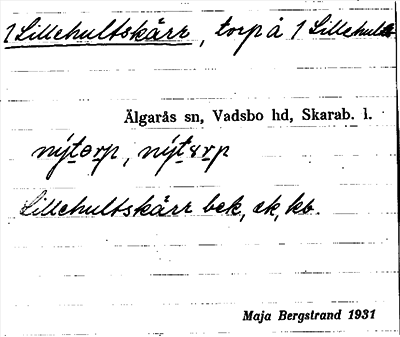 1 Lillehultskärr, torp å 1 Lillehult
Älgarås sn, Vadsbo hd, Skarab. l.
nýtorp, nýtorp
Lillehultskärr bek, ek, kb.
Maja Bergstrand 1931